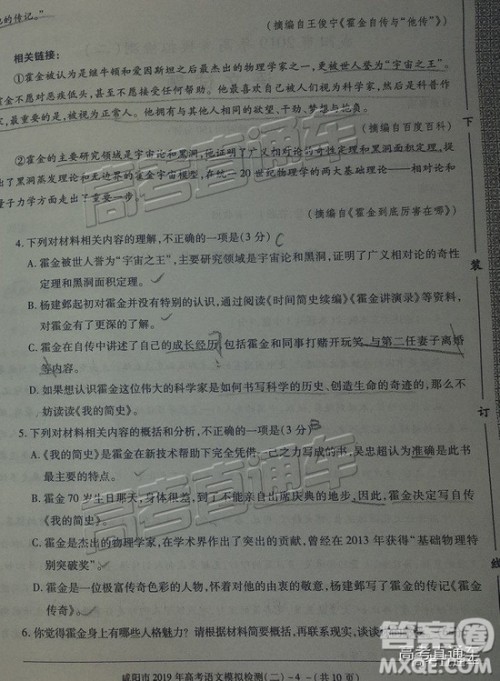 的传记。”
（摘编自王俊宁《霍金自传与“他传”》）
相关链接：
①霍金被认为是继牛顿和爱因斯坦之后最杰出的物理学家之一，更被世人誉为“宇宙之王”。
霍金不愿对恶疾低头，甚至不愿接受任何帮助。他最喜欢自己被人们视为科学家，然后是科普作
家，最重要的是，被视为正常人。他拥有与他人相同的欲望、干劲、梦想与抱负。
（摘编自百度百科）
②霍金的主要研究领域是宇宙论和黑洞，他证明了广义相对论的奇性定理和黑洞面积定理，提
出了黑洞蒸发理论和无边界的霍金宇宙模型，在统一20世纪物理学的两大基础理论——相对论和
量子力学方面走出了重要一步。
（摘编自《霍金到底厉害在哪》）
4. 下列对材料相关内容的理解，不正确的一项是（3分） C
A. 霍金被世人誉为“宇宙之王”，主要研究领域是宇宙论和黑洞，证明了广义相对论的奇性
定理和黑洞面积定理。
B. 杨建邺起初对霍金并没有特别的认识，通过阅读《时间简史续编》《霍金讲演录》等资料，
对霍金有了更深的了解。
C. 霍金在自传中讲述了自己的成长经历，包括霍金和同事打赌开玩笑、与第二任妻子离婚
等内容。
D. 如果想认识霍金这位伟大的科学家是如何书写科学的历史、创造生命的奇迹的，那么不
妨读读《我的简史》。
5. 下列对材料相关内容的概括和分析，不正确的一项是（3分） B
A. 《我的简史》是霍金在新技术帮助下完全凭借一己之力写成的书，吴忠超认为准确是此书
最主要的特点。
B. 霍金70岁生日那天，身体很差，到了不能亲自出席庆典的地步，因此，霍金决定写自传
《我的简史》。
C. 霍金是杰出的物理学家，在学术界作出了突出的贡献，曾经在2013年获得“基础物理学特
别突破奖”。
D. 霍金是一位极富传奇色彩的人物，怀着对他的由衷的敬意，杨建邺写了霍金的传记《霍金
传奇》。
6. 你觉得霍金身上有哪些人格魅力？请根据材料简要概括，再联系现实，谈谈
咸阳市2019年高考语文模拟检测（二）-4-（共10页）
下
装
订
线
高考直通车
高考直通车
高考直通车
答案圈
MXQE.COM